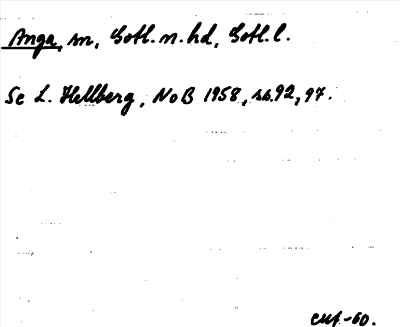 Anga, sn, Gotl. n. hd, Gotl. l.
Se L. Hellberg, NoB 1958, ss. 92, 97.